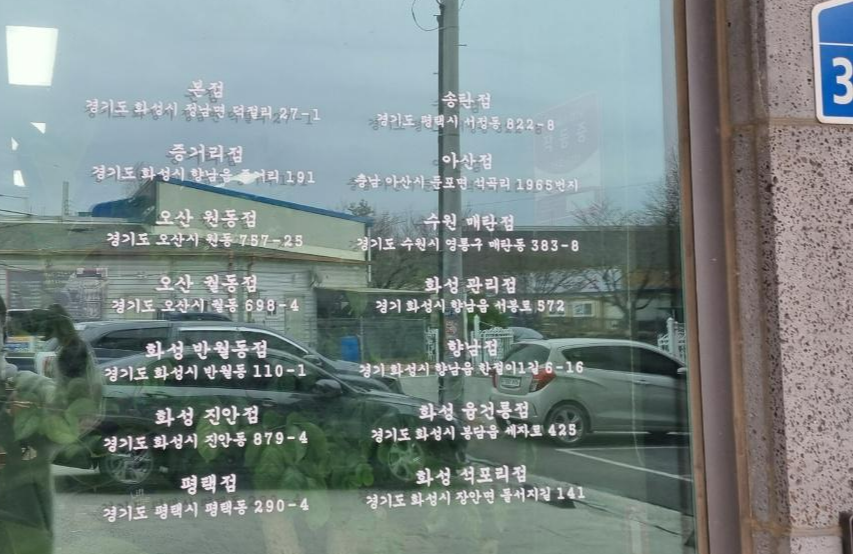 본점
경기도 화성시 정남면 덕절리 27-1
증거리점
경기도 화성시 향남읍 증거리 191
오산 원동점
경기도 오산시 원동 757-25
오산 월동점
경기도 오산시 월동 698-4
화성 반월동점
경기도 화성시 반월동 110-1
화성 진안점
경기도 화성시 진안동 879-4
평택점
경기도 평택시 평택동 290-4
송탄점
경기도 평택시 서정동 822-8
아산점
충남 아산시 둔포면 석곡리 1965번지
수원 매탄점
경기도 수원시 영통구 매탄동 383-8
화성 관리점
경기 화성시 향남읍 서봉로 572
향남점
경기 화성시 향남읍 한절이1길 6-16
화성 융건릉점
경기도 화성시 봉담읍 세자로 425
화성 석포리점
경기도 화성시 장안면 돌서지길 141
3